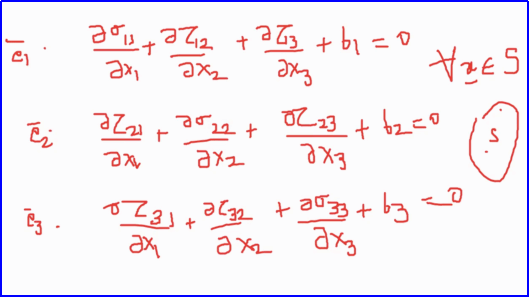 ē₁. ∂σ₁₁/∂x₁ + ∂τ₁₂/∂x₂ + ∂τ₁₃/∂x₃ + b₁ = 0 ∀x ∈ S
ē₂. ∂τ₂₁/∂x₁ + ∂σ₂₂/∂x₂ + ∂τ₂₃/∂x₃ + b₂ = 0 S
ē₃. ∂τ₃₁/∂x₁ + ∂τ₃₂/∂x₂ + ∂σ₃₃/∂x₃ + b₃ = 0